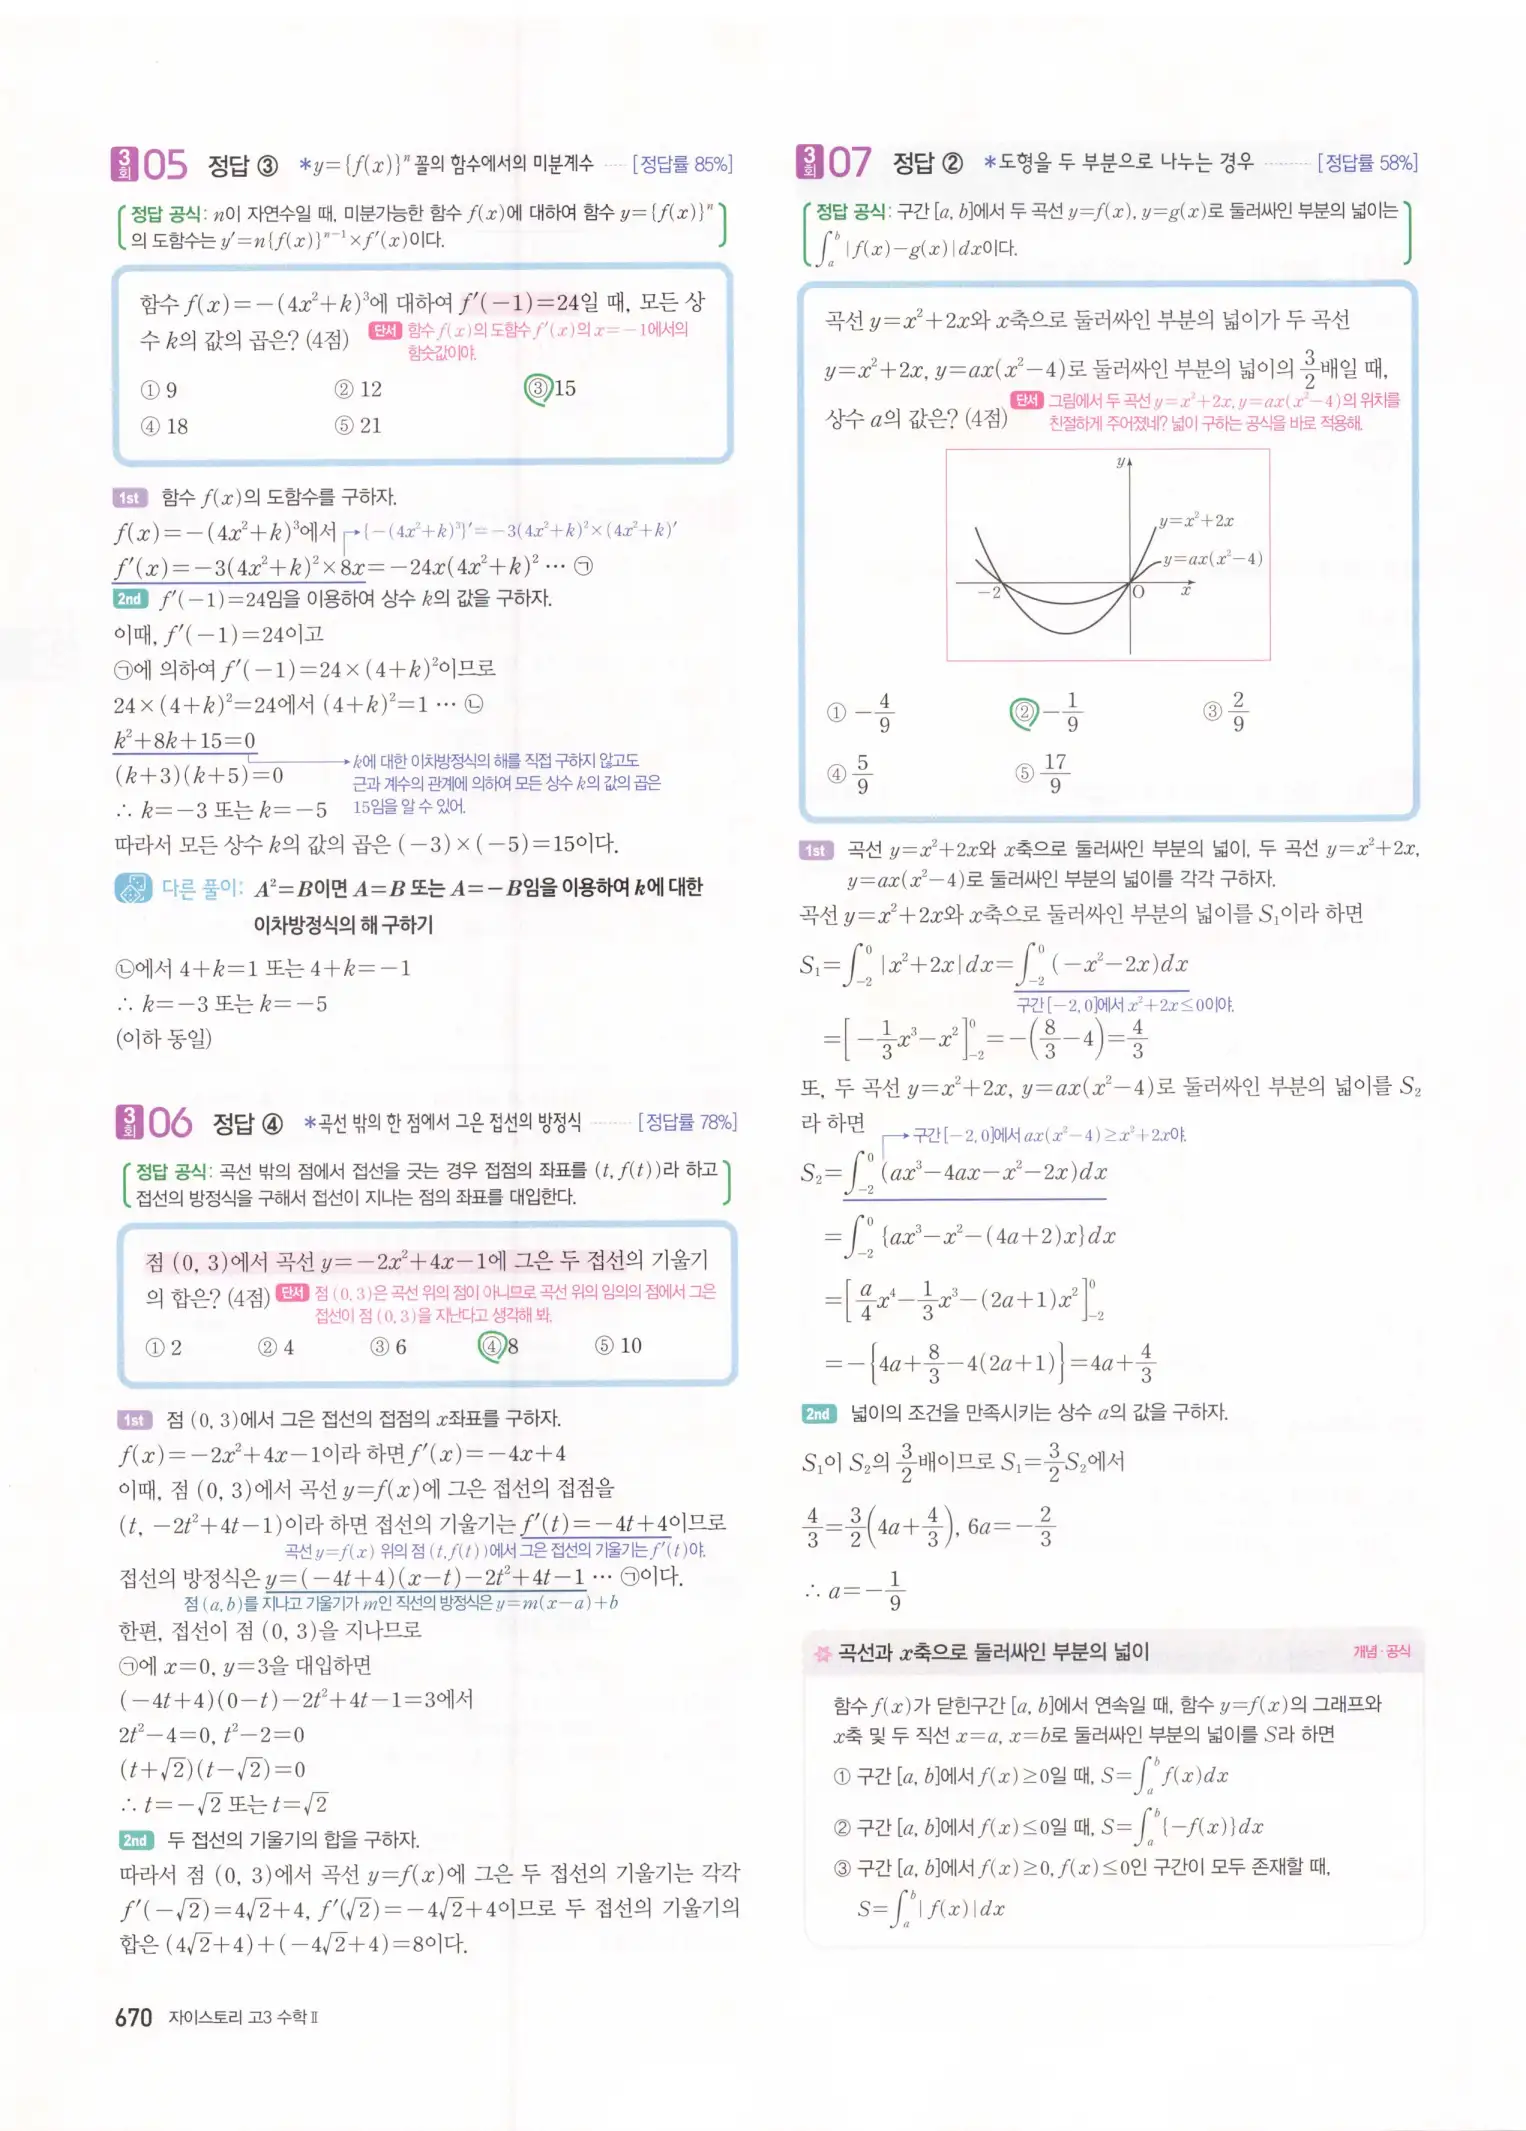 3회 05 정답 ③ *y={f(x)}ⁿ 꼴의 함수에서의 미분계수 ······ [정답률 85%]
정답 공식: n이 자연수일 때, 미분가능한 함수 f(x)에 대하여 함수 y={f(x)}ⁿ
의 도함수는 y′=n{f(x)}ⁿ⁻¹×f′(x)이다.
함수 f(x)=−(4x²+k)³에 대하여 f′(−1)=24일 때, 모든 상
수 k의 값의 곱은? (4점) 단서 함수 f(x)의 도함수 f′(x)의 x=−1에서의
함숫값이야.
① 9 ② 12 ③ 15
④ 18 ⑤ 21
1st 함수 f(x)의 도함수를 구하자.
f(x)=−(4x²+k)³에서 {−(4x²+k)³}′=−3(4x²+k)²×(4x²+k)′
f′(x)=−3(4x²+k)²×8x=−24x(4x²+k)² ··· ㉠
2nd f′(−1)=24임을 이용하여 상수 k의 값을 구하자.
이때, f′(−1)=24이고
㉠에 의하여 f′(−1)=24×(4+k)²이므로
24×(4+k)²=24에서 (4+k)²=1 ··· ㉡
k²+8k+15=0
(k+3)(k+5)=0 k에 대한 이차방정식의 해를 직접 구하지 않고도
근과 계수의 관계에 의하여 모든 상수 k의 값의 곱은
∴ k=−3 또는 k=−5 15임을 알 수 있어.
따라서 모든 상수 k의 값의 곱은 (−3)×(−5)=15이다.
다른 풀이: A²=B이면 A=B 또는 A=−B임을 이용하여 k에 대한
이차방정식의 해 구하기
㉡에서 4+k=1 또는 4+k=−1
∴ k=−3 또는 k=−5
(이하 동일)
3회 06 정답 ④ *곡선 밖의 한 점에서 그은 접선의 방정식 ······ [정답률 78%]
정답 공식: 곡선 밖의 점에서 접선을 긋는 경우 접점의 좌표를 (t, f(t))라 하고
접선의 방정식을 구해서 접선이 지나는 점의 좌표를 대입한다.
점 (0, 3)에서 곡선 y=−2x²+4x−1에 그은 두 접선의 기울기
의 합은? (4점) 단서 점 (0, 3)은 곡선 위의 점이 아니므로 곡선 위의 임의의 점에서 그은
접선이 점 (0, 3)을 지난다고 생각해 봐.
① 2 ② 4 ③ 6 ④ 8 ⑤ 10
1st 점 (0, 3)에서 그은 접선의 접점의 x좌표를 구하자.
f(x)=−2x²+4x−1이라 하면 f′(x)=−4x+4
이때, 점 (0, 3)에서 곡선 y=f(x)에 그은 접선의 접점을
(t, −2t²+4t−1)이라 하면 접선의 기울기는 f′(t)=−4t+4이므로
곡선 y=f(x) 위의 점 (t, f(t))에서 그은 접선의 기울기는 f′(t)야.
접선의 방정식은 y=(−4t+4)(x−t)−2t²+4t−1 ··· ㉠이다.
점 (a, b)를 지나고 기울기가 m인 직선의 방정식은 y=m(x−a)+b
한편, 접선이 점 (0, 3)을 지나므로
㉠에 x=0, y=3을 대입하면
(−4t+4)(0−t)−2t²+4t−1=3에서
2t²−4=0, t²−2=0
(t+√2)(t−√2)=0
∴ t=−√2 또는 t=√2
2nd 두 접선의 기울기의 합을 구하자.
따라서 점 (0, 3)에서 곡선 y=f(x)에 그은 두 접선의 기울기는 각각
f′(−√2)=4√2+4, f′(√2)=−4√2+4이므로 두 접선의 기울기의
합은 (4√2+4)+(−4√2+4)=8이다.
670 자이스토리 고3 수학Ⅱ
3회 07 정답 ② *도형을 두 부분으로 나누는 경우 ······ [정답률 58%]
정답 공식: 구간 [a, b]에서 두 곡선 y=f(x), y=g(x)로 둘러싸인 부분의 넓이는
∫ₐᵇ |f(x)−g(x)|dx이다.
곡선 y=x²+2x와 x축으로 둘러싸인 부분의 넓이가 두 곡선
y=x²+2x, y=ax(x²−4)로 둘러싸인 부분의 넓이의 3/2배일 때,
상수 a의 값은? (4점) 단서 그림에서 두 곡선 y=x²+2x, y=ax(x²−4)의 위치를
친절하게 주어졌네? 넓이 구하는 공식을 바로 적용해.
y
y=x²+2x
y=ax(x²−4)
−2 O x
① −4/9 ② −1/9 ③ 2/9
④ 5/9 ⑤ 17/9
1st 곡선 y=x²+2x와 x축으로 둘러싸인 부분의 넓이, 두 곡선 y=x²+2x,
y=ax(x²−4)로 둘러싸인 부분의 넓이를 각각 구하자.
곡선 y=x²+2x와 x축으로 둘러싸인 부분의 넓이를 S₁이라 하면
S₁=∫₋₂⁰ |x²+2x|dx=∫₋₂⁰ (−x²−2x)dx
구간 [−2, 0]에서 x²+2x≤0이야.
=[−1/3x³−x²]₋₂⁰=−(8/3−4)=4/3
또, 두 곡선 y=x²+2x, y=ax(x²−4)로 둘러싸인 부분의 넓이를 S₂
라 하면 구간 [−2, 0]에서 ax(x²−4)≥x²+2x야.
S₂=∫₋₂⁰ (ax³−4ax−x²−2x)dx
=∫₋₂⁰ {ax³−x²−(4a+2)x}dx
=[a/4x⁴−1/3x³−(2a+1)x²]₋₂⁰
=−{4a+8/3−4(2a+1)}=4a+4/3
2nd 넓이의 조건을 만족시키는 상수 a의 값을 구하자.
S₁이 S₂의 3/2배이므로 S₁=3/2S₂에서
4/3=3/2(4a+4/3), 6a=−2/3
∴ a=−1/9
곡선과 x축으로 둘러싸인 부분의 넓이 개념·공식
함수 f(x)가 닫힌구간 [a, b]에서 연속일 때, 함수 y=f(x)의 그래프와
x축 및 두 직선 x=a, x=b로 둘러싸인 부분의 넓이를 S라 하면
① 구간 [a, b]에서 f(x)≥0일 때, S=∫ₐᵇ f(x)dx
② 구간 [a, b]에서 f(x)≤0일 때, S=∫ₐᵇ {−f(x)}dx
③ 구간 [a, b]에서 f(x)≥0, f(x)≤0인 구간이 모두 존재할 때,
S=∫ₐᵇ |f(x)|dx